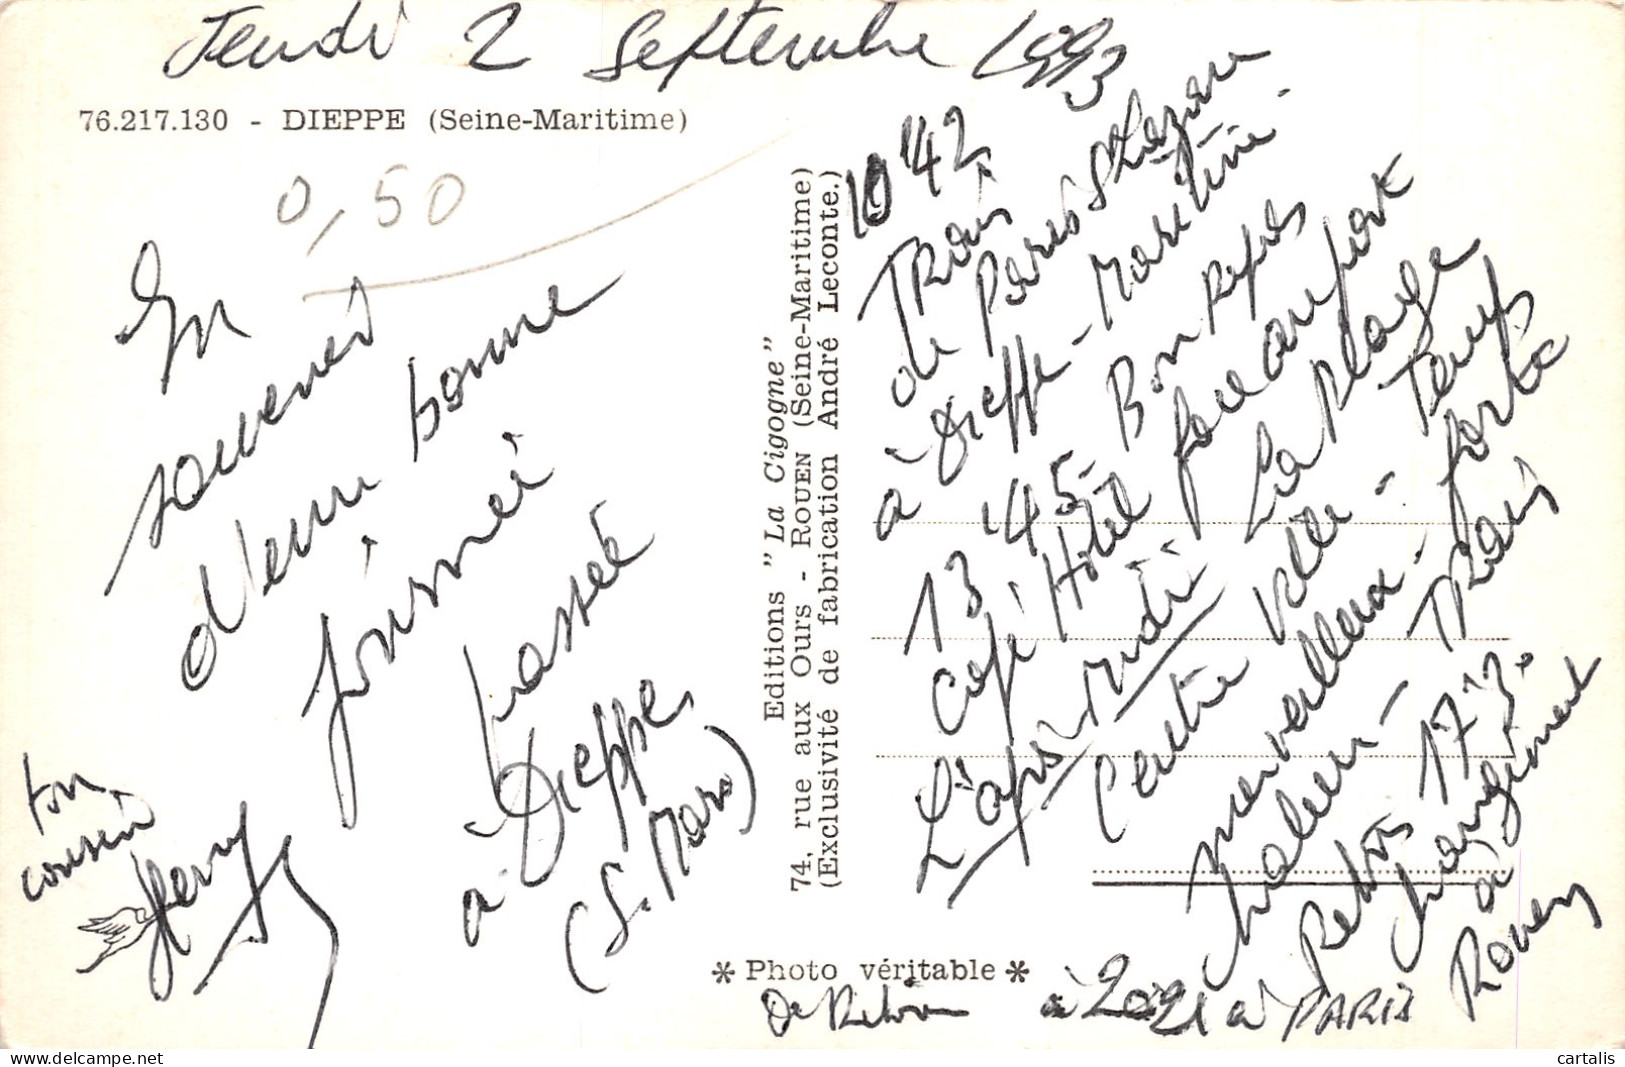 Jeudi 2 Septembre 1993
76.217.130 - DIEPPE (Seine-Maritime)
0,50
En
souvenir
d'une bonne
journée
passée
à Dieppe
(S. Mar.)
ton
cousin
Henry
Editions "La Cigogne"
74, rue aux Ours - ROUEN (Seine-Maritime)
(Exclusivité de fabrication André Leconte.)
10 42
Train
de Paris St Lazare
à Dieppe - Maritime.
13 45 - Bon Repas
Café Hôtel face au port
L'après Midi La Plage
Centre Ville - Temps
merveilleux. forte
chaleur - Train
Retour 17 3.
changement
à
Rouen
* Photo véritable *
De Retour à 20 21 à PARIS
cartalis